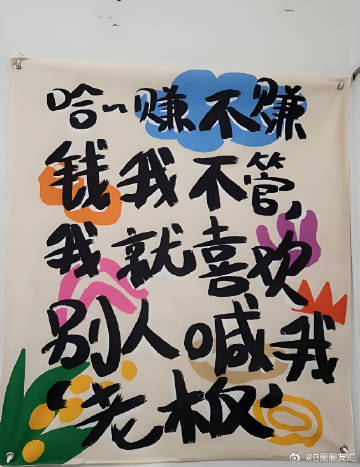 哈~赚不赚
钱我不管,
我就喜欢
别人喊我
‘老板’
@B圈圈友汇